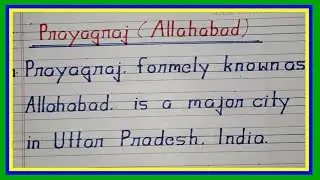 Prayagraj (Allahabad)
1. Prayagraj, formely known as
Allahabad, is a major city
in Uttar Pradesh, India.